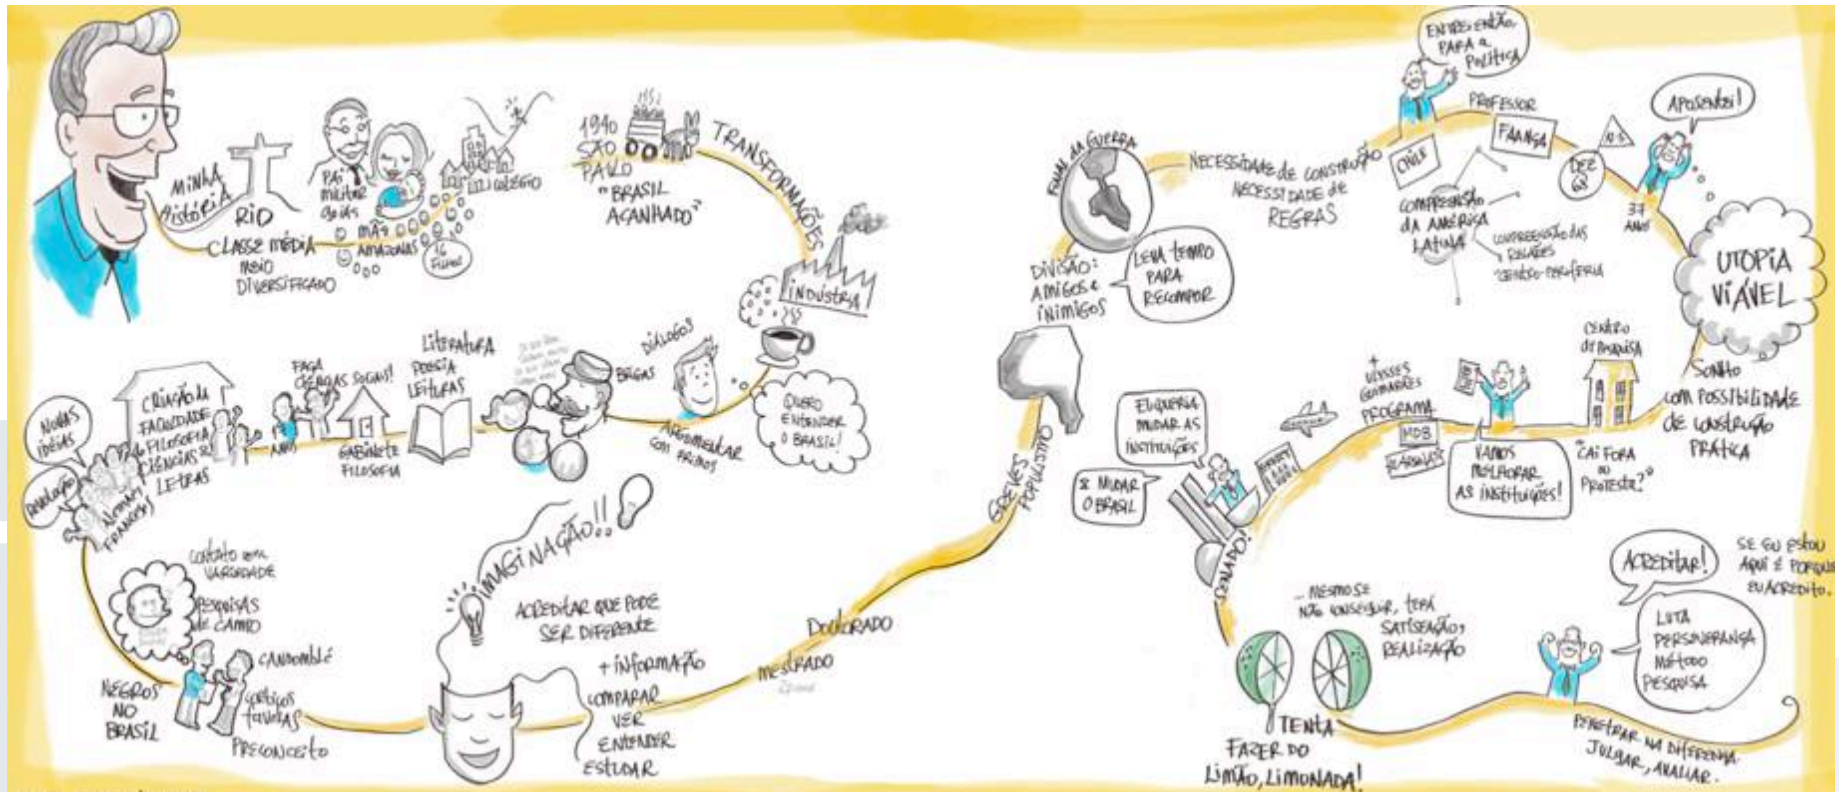 MINHA
HISTÓRIA
RIO
CLASSE MÉDIA
MEIO
DIVERSIFICADO
PAI
militar
goiás
MÃE
AMAZONAS
16
FILHOS
COLÉGIO
1940
SÃO
PAULO
"BRASIL
ACANHADO"
TRANSFORMAÇÕES
INDÚSTRIA
QUERO
ENTENDER
O BRASIL!
DIÁLOGOS
ARGUMENTAR
COM PRIMOS
BRIGAS
LITERATURA
POESIA
LEITURAS
GABINETE
FILOSOFIA
FAÇA
CIÊNCIAS SOCIAIS!
CRIAÇÃO da
FACULDADE
FILOSOFIA
CIÊNCIAS &
LETRAS
NOVAS
IDÉIAS
REVOLUÇÃO
FRANCESES
CONTATO COM
VARIEDADE
PESQUISAS
de CAMPO
NEGROS
NO
BRASIL
CANDOMBLÉ
CORTIÇOS
FAVELAS
PRECONCEITO
IMAGINAÇÃO!!
ACREDITAR QUE PODE
SER DIFERENTE
+ INFORMAÇÃO
COMPARAR
VER
ENTENDER
ESTUDAR
MESTRADO
DOUTORADO
GREVES
POPULISMO
FINAL DA GUERRA
DIVISÃO:
AMIGOS e
INIMIGOS
LEVA TEMPO
PARA
RECOMPOR
NECESSIDADE de CONSTRUÇÃO
NECESSIDADE de
REGRAS
ENTREI ENTÃO
PARA a
POLÍTICA
PROFESSOR
CHILE
FRANÇA
COMPREENSÃO
DA AMÉRICA
LATINA
COMPREENSÃO DAS
RELAÇÕES
CENTRO-PERIFERIA
DEZ
68
37
ANOS
APOSENTEI!
UTOPIA
VIÁVEL
SONHO
COM POSSIBILIDADE
DE CONSTRUÇÃO
PRÁTICA
CENTRO
de PESQUISA
"CAI FORA
OU
PROTESTA?"
VAMOS
MELHORAR
AS INSTITUIÇÕES!
+
ULYSSES
GUIMARÃES
PROGRAMA
MDB
EU QUERIA
MUDAR AS
INSTITUIÇÕES
& MUDAR
O BRASIL
SENADO!
TENTA
FAZER DO
LIMÃO, LIMONADA!
... MESMO SE
NÃO CONSEGUIR, TERÁ
SATISFAÇÃO,
REALIZAÇÃO
ACREDITAR!
SE EU ESTOU
AQUI É PORQUE
EU ACREDITO.
LUTA
PERSEVERANÇA
MÉTODO
PESQUISA
PENETRAR NA DIFERENÇA
JULGAR, AVALIAR.